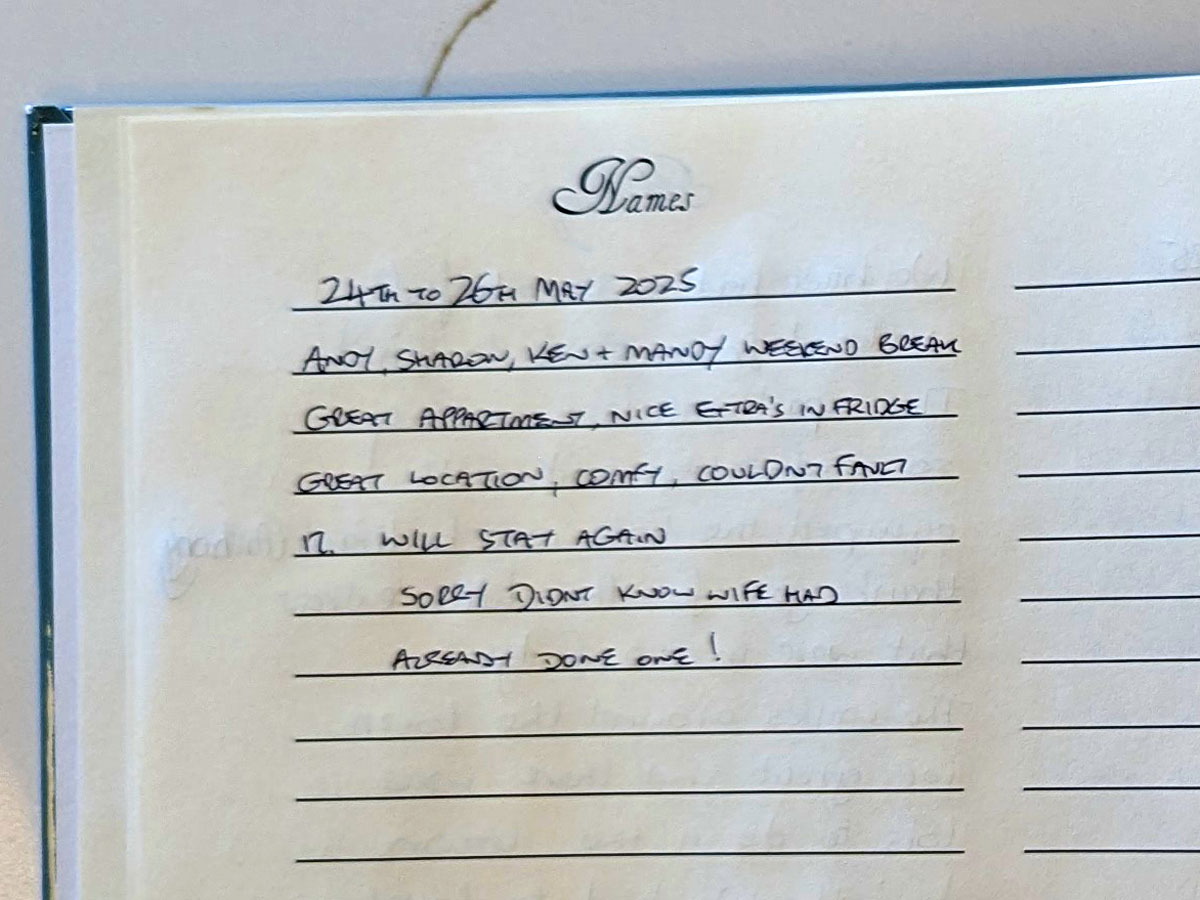 Names
24TH TO 26TH MAY 2025
ANDY, SHARON, KEN + MANDY WEEKEND BREAK
GREAT APPARTMENT, NICE EXTRA'S IN FRIDGE
GREAT LOCATION, COMFY, COULDNT FAULT
IT. WILL STAY AGAIN
SORRY DIDNT KNOW WIFE HAD
ALREADY DONE ONE!